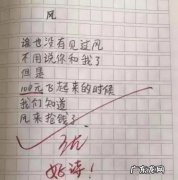 风
谁也没有见过风
不用说你和我了
但是
100元飞起来的时候
我们知道
风来抢钱了
好诗！
广东龙网